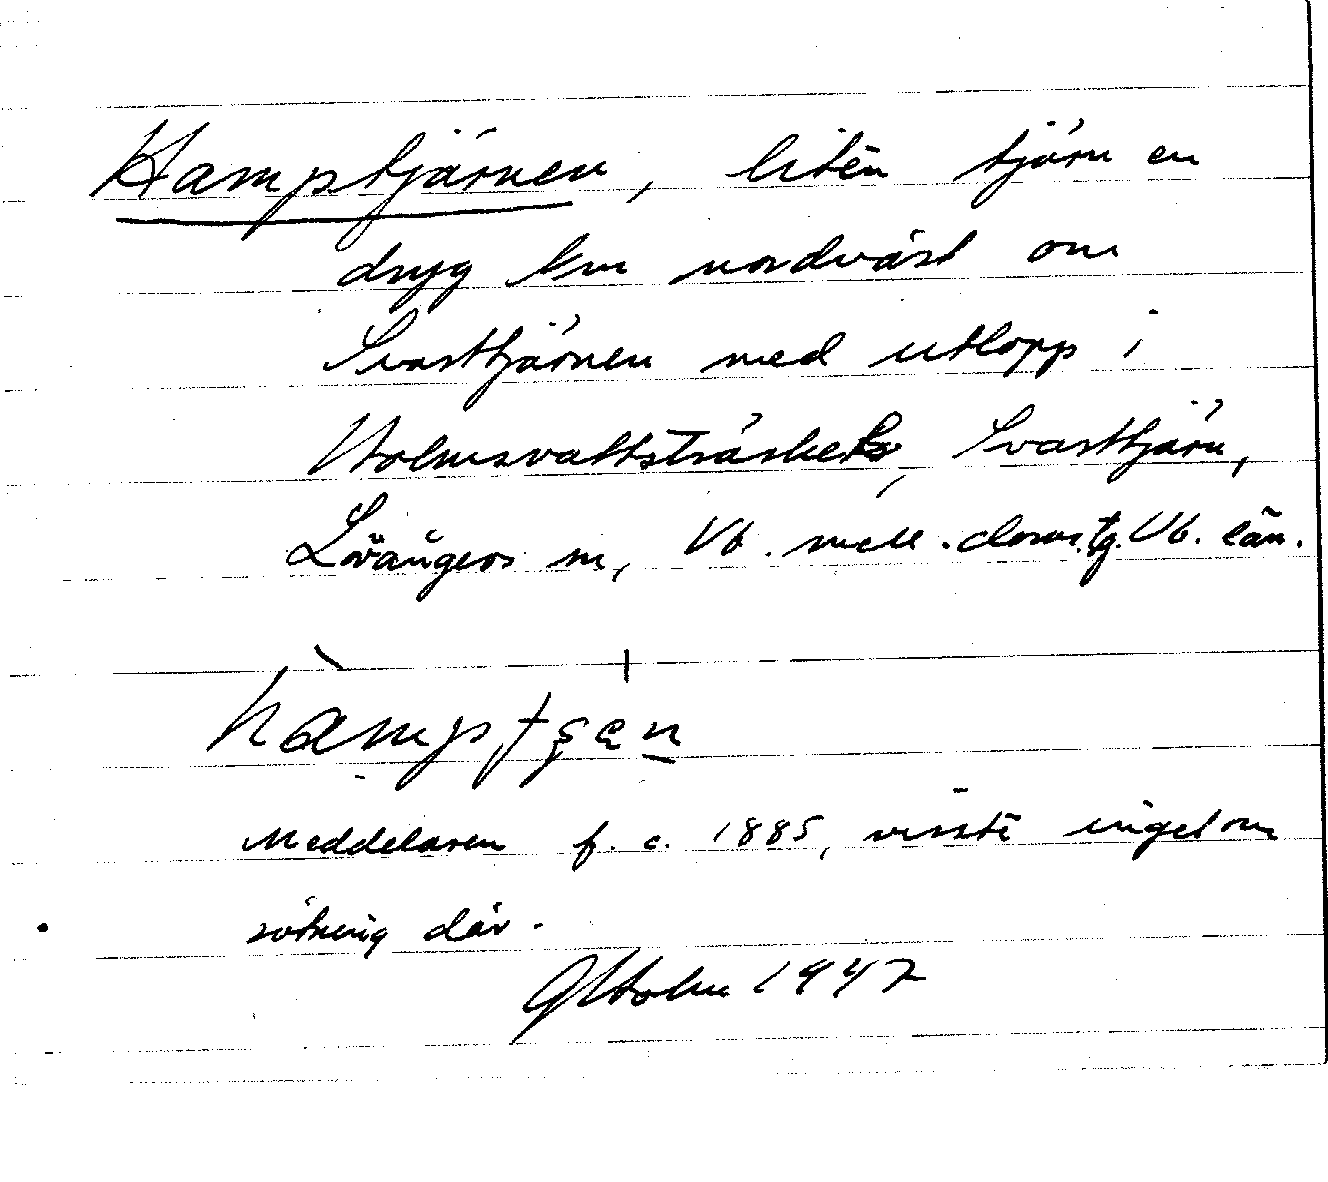 Hamptjärnen, liten tjärn en
dryg km nordväst om
Svarttjärnen med utlopp i
Holmsvattsträskets, Svarttjärn,
Lövångers sn, Vb. mell. doms.tg. Vb. län.
Meddelaren f. c. 1885, visste inget om
rötning där.
GHolm 1947